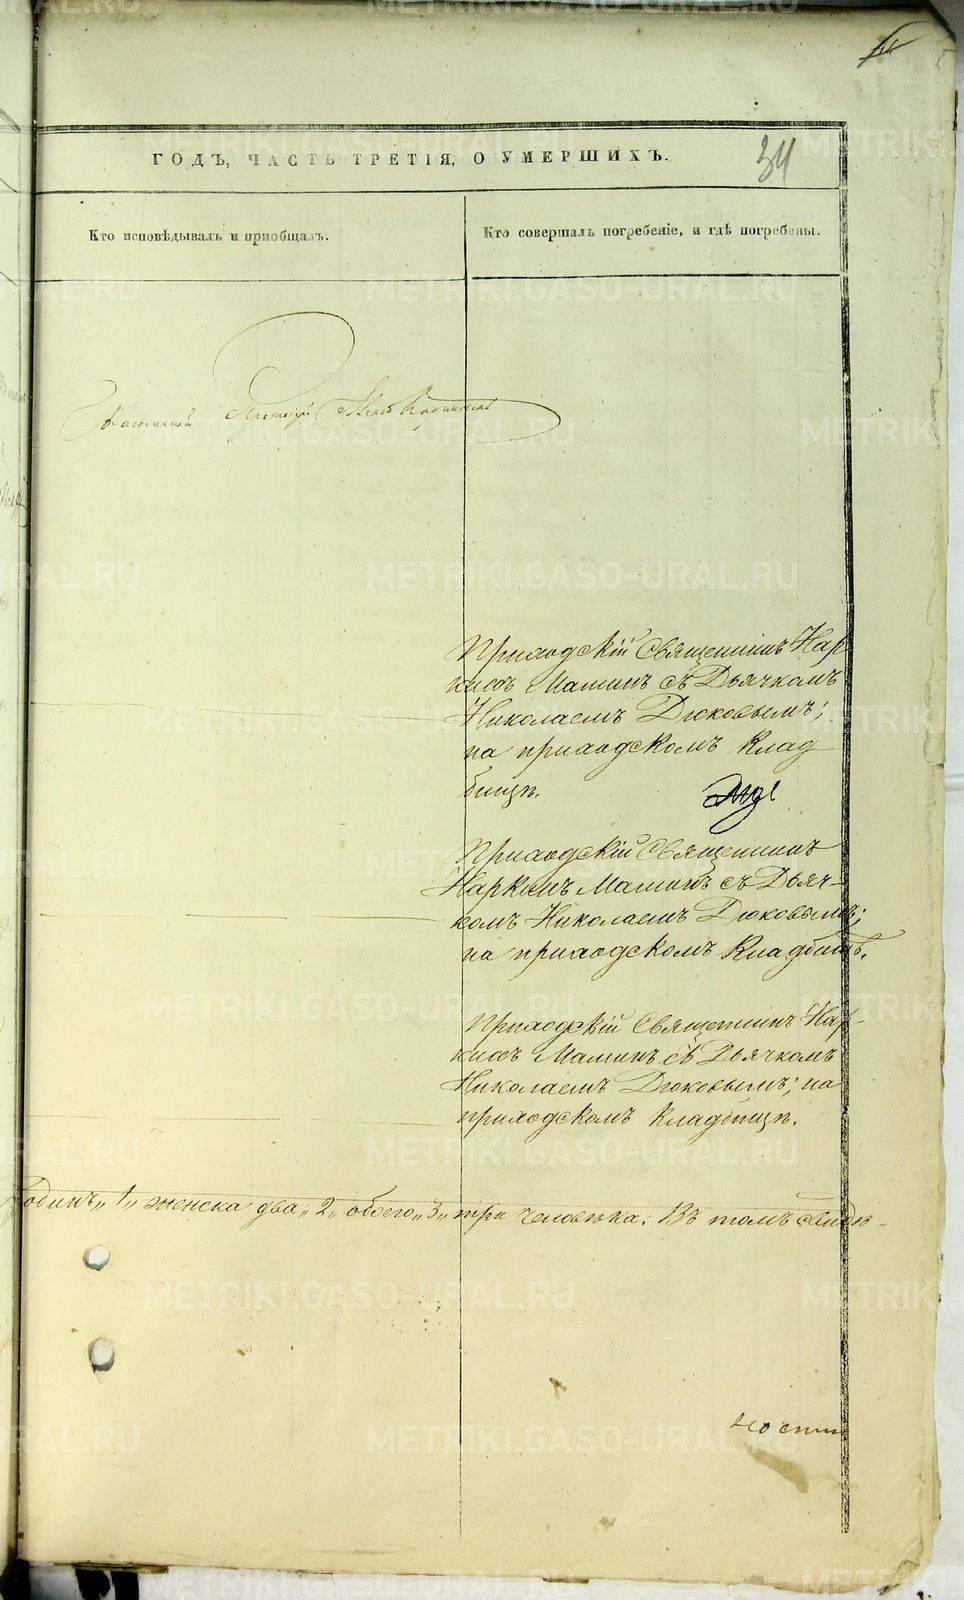 34
ГОДЪ, ЧАСТЬ ТРЕТІЯ, О УМЕРШИХЪ.
Кто исповѣдывалъ и приобщалъ.
Кто совершалъ погребеніе, и гдѣ погребены.
Протоіерей
Приходскій Священникъ Нар
кисъ Маминъ съ Дьячкомъ
Николаемъ Дюковымъ;
на приходскомъ клад
бищѣ.
Приходскій Священникъ
Наркисъ Маминъ съ Дьяч-
комъ Николаемъ Дюковымъ;
на приходскомъ Кладбищѣ.
Приходскій Священникъ Нар-
кисъ Маминъ съ Дьячкомъ
Николаемъ Дюковымъ; на
приходскомъ кладбищѣ.
одинъ „1„ женска два „2„ обоего „3„ три человѣка. Въ томъ свидѣ-
METRIKI.GASO-URAL.RU